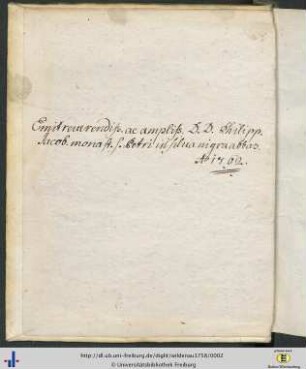 Emit reverendiss. ac ampliss. D.D. Philipp.
Jacob. monast. S. Petri in silva nigra abbas.
Aō 1760.
http://dl.ub.uni-freiburg.de/diglit/widenau1758/0002
© Universitätsbibliothek Freiburg